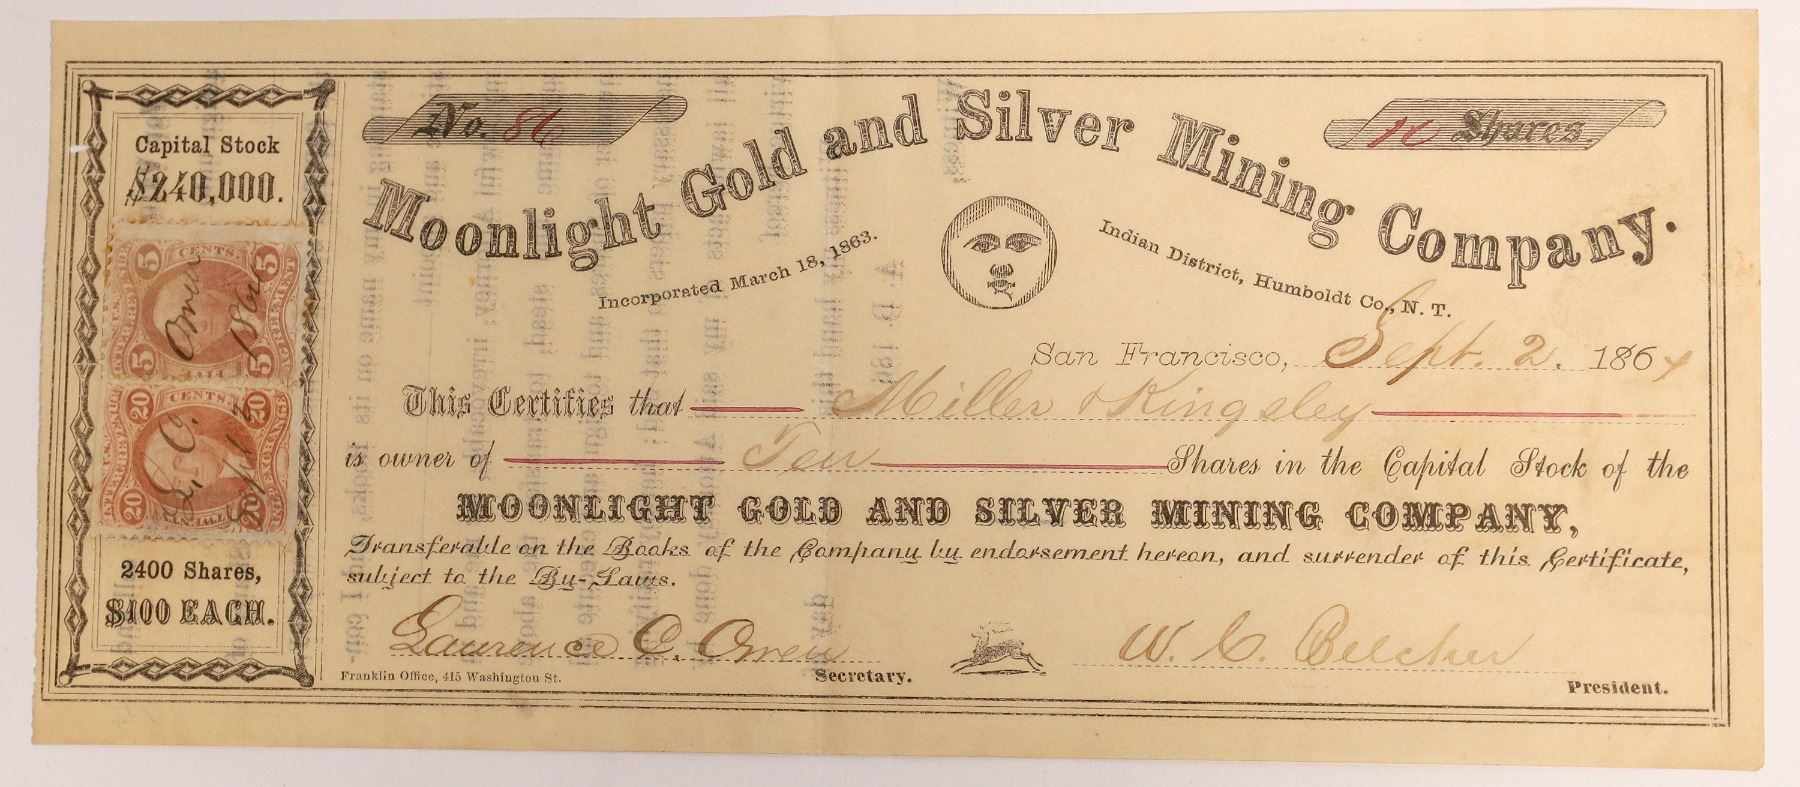 No. 86
10 Shares.
Moonlight Gold and Silver Mining Company.
Incorporated March 18, 1863.
Indian District, Humboldt Co., N. T.
San Francisco, Sept. 2. 1864
This Certifies that Miller & Kingsley
is owner of Ten Shares in the Capital Stock of the
MOONLIGHT GOLD AND SILVER MINING COMPANY,
Transferable on the Books of the Company by endorsement hereon, and surrender of this Certificate,
subject to the By-Laws.
Laurence C. Owen
Secretary.
W. C. Belcher
President.
Franklin Office, 415 Washington St.
Capital Stock
$240,000.
5 CENTS. 5
U.S. INTER. REVENUE
AGREEMENT
5 FIVE 5
Owen
1864
20 CENTS. 20
U.S. INTER. REVENUE
20 TWENTY 20
L. C.
Sept 2
2400 Shares,
$100 EACH.